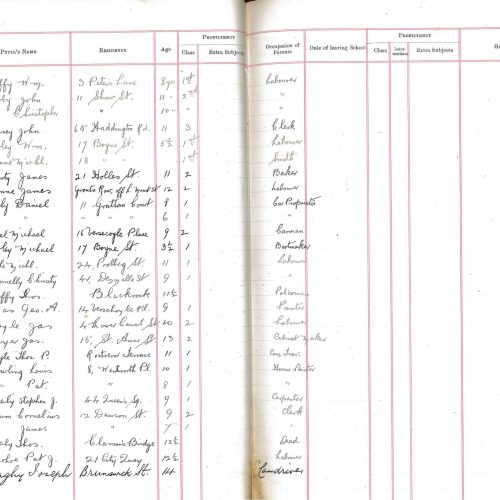 Proficiency Proficiency
Pupil's Name Residence Age Class Extra Subjects Occupation of Parents Date of leaving School Class Inter-mediate Extra Subjects
ffy Wm. 3 Peter's Lane 8 yrs 1st Labourer
by John 11 Shaw St. 11 " 2nd "
Christopher " 10 " " "
ney John 65 Haddington Rd. 11 3 Clerk
ley Wm. 17 Boyne St. 5½ 1st Labourer
ne Michl. 18 " 1st Smith
ty James 21 Holles St. 11 2 Baker
nne James 12 2 Labourer
ly Daniel 11 Grattan Court 8 1 Car Proprietor
" " " 6 1 "
el Michael 16 Verschoyle Place 9 2 Carman
ley Michael 17 Boyne St. 3½ 1 Bootmaker
le Michl. 24, Poolbeg St. 11 1 Labourer
nnelly Christy 9 1 "
ffy Thos. Blackrock 11½ Policeman
as Geo. A. 14 Verschoyle Pl. 9 1 Painter
yle Jas 4 Canal St. 10 2 Labourer
yer Jas. 15, St. Anne St. 13 2 Cabinet Maker
gle Thos P. Rostrevor Terrace 11 1 Com. Trav.
wling Louis 8, Wentworth Pl. 10 1 House Painter
" Pat. " 8 1 "
aly Stephen J. 44 Queen's Sq. 9 1 Carpenter
um Cornelius 12 Dawson St. 9 2 Clerk
James " 7 1 "
aly Thos. Clanson's Bridge 12½ Dead
ohoe Pat J. 21 City Quay 12½ Labourer
aghy Joseph Brunswick St. 14